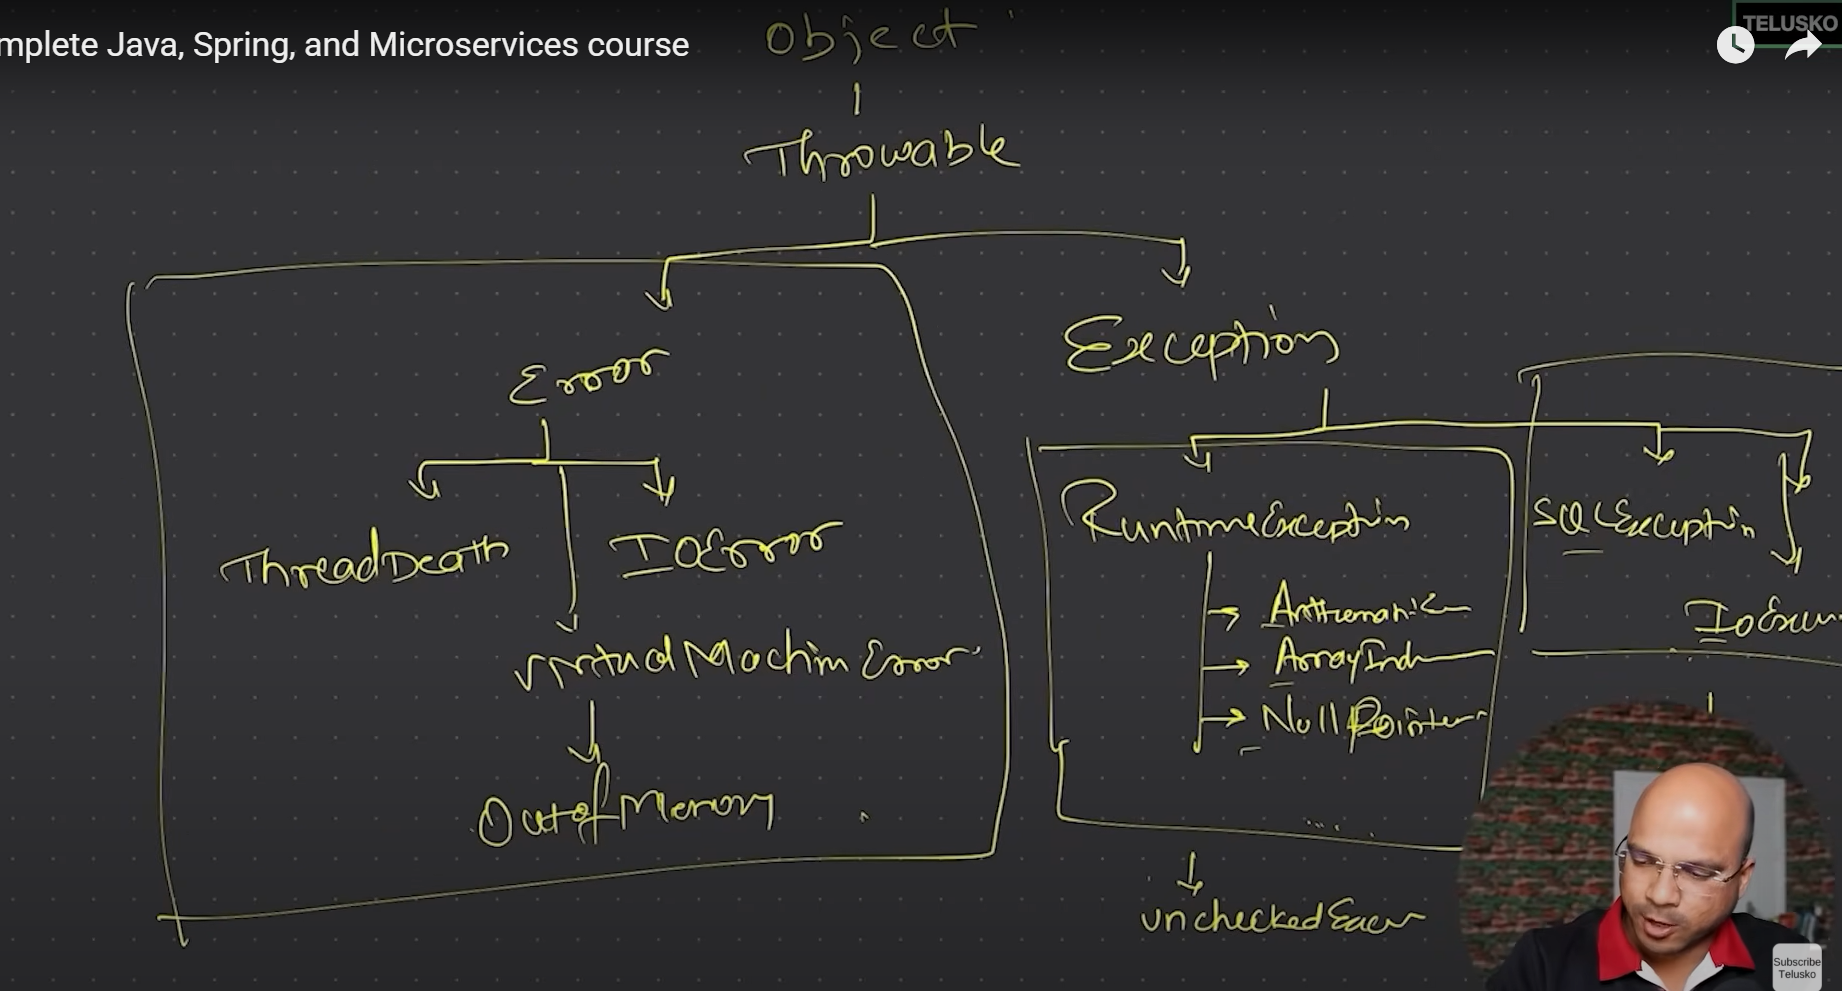 mplete Java, Spring, and Microservices course
TELUSKO
Object
Throwable
Error
Exception
ThreadDeath
IOError
VirtualMachin Error
OutofMemory
RuntimeException
Arithematic
ArrayInd
Null Pointer
SQLException
unchecked
Subscribe
Telusko